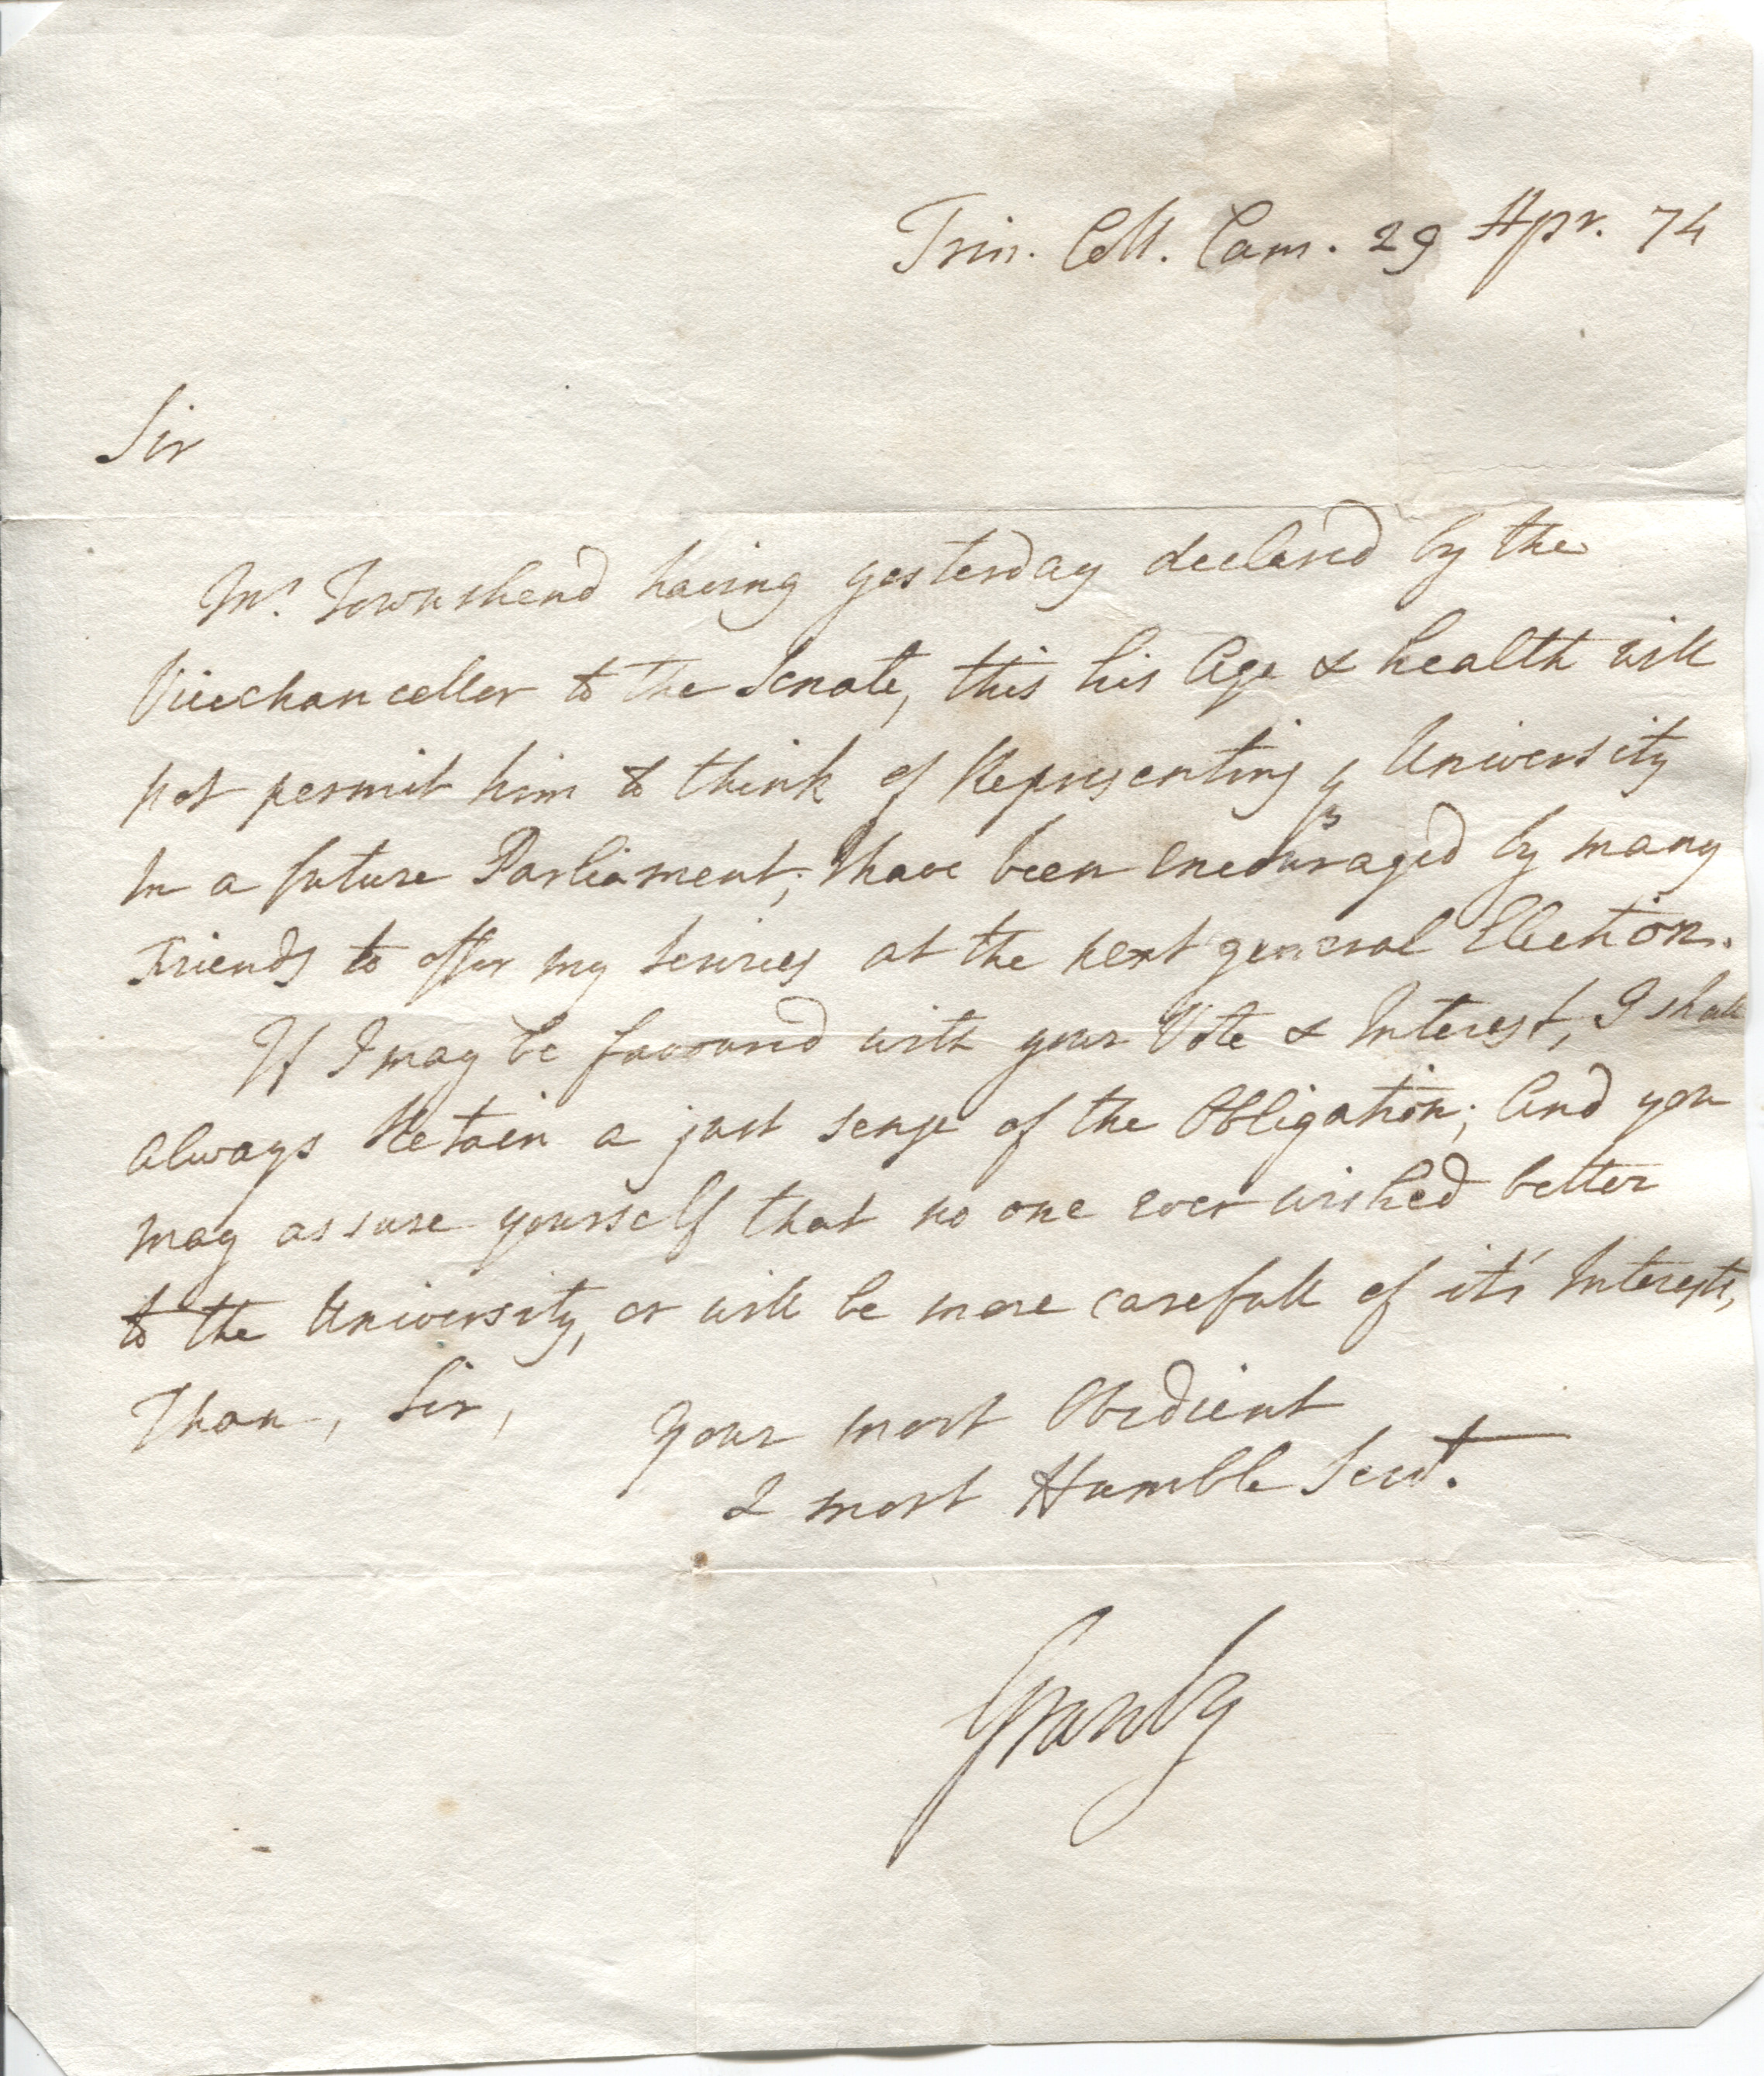 Trin. Coll. Cam. 29 Apr. 74
Sir
Mr. Townshend having yesterday declared by the
Vicechancellor to the Senate, this his Age & health will
not permit him to think of Representing ye University
in a future Parliament; I have been encouraged by many
Friends to offer my Services at the next general Election.
If I may be favoured with your Vote & Interest, I shall
always Retain a just sense of the Obligation; And you
may assure yourself that no one ever wished better
to the University, or will be more carefull of it's Interests,
Than, Sir,
Your most Obedient
& most Humble Servt.
Granby